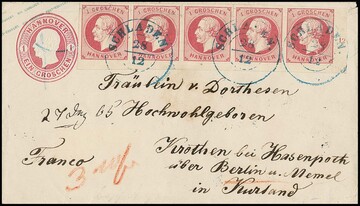 HANNOVER
EIN GROSCHEN
1 1
1 GROSCHEN 1 GROSCHEN 1 GROSCHEN 1 GROSCHEN 1 GROSCHEN
HANNOVER HANNOVER HANNOVER HANNOVER HANNOVER
SCHLADEN SCHLADEN SCHLADEN
28 28
12 12 12
Fräulein v. Dorthesen
Hochwohlgeboren
Kröthen bei Hasenpoth
Franco
über Berlin u. Memel
in Kurland